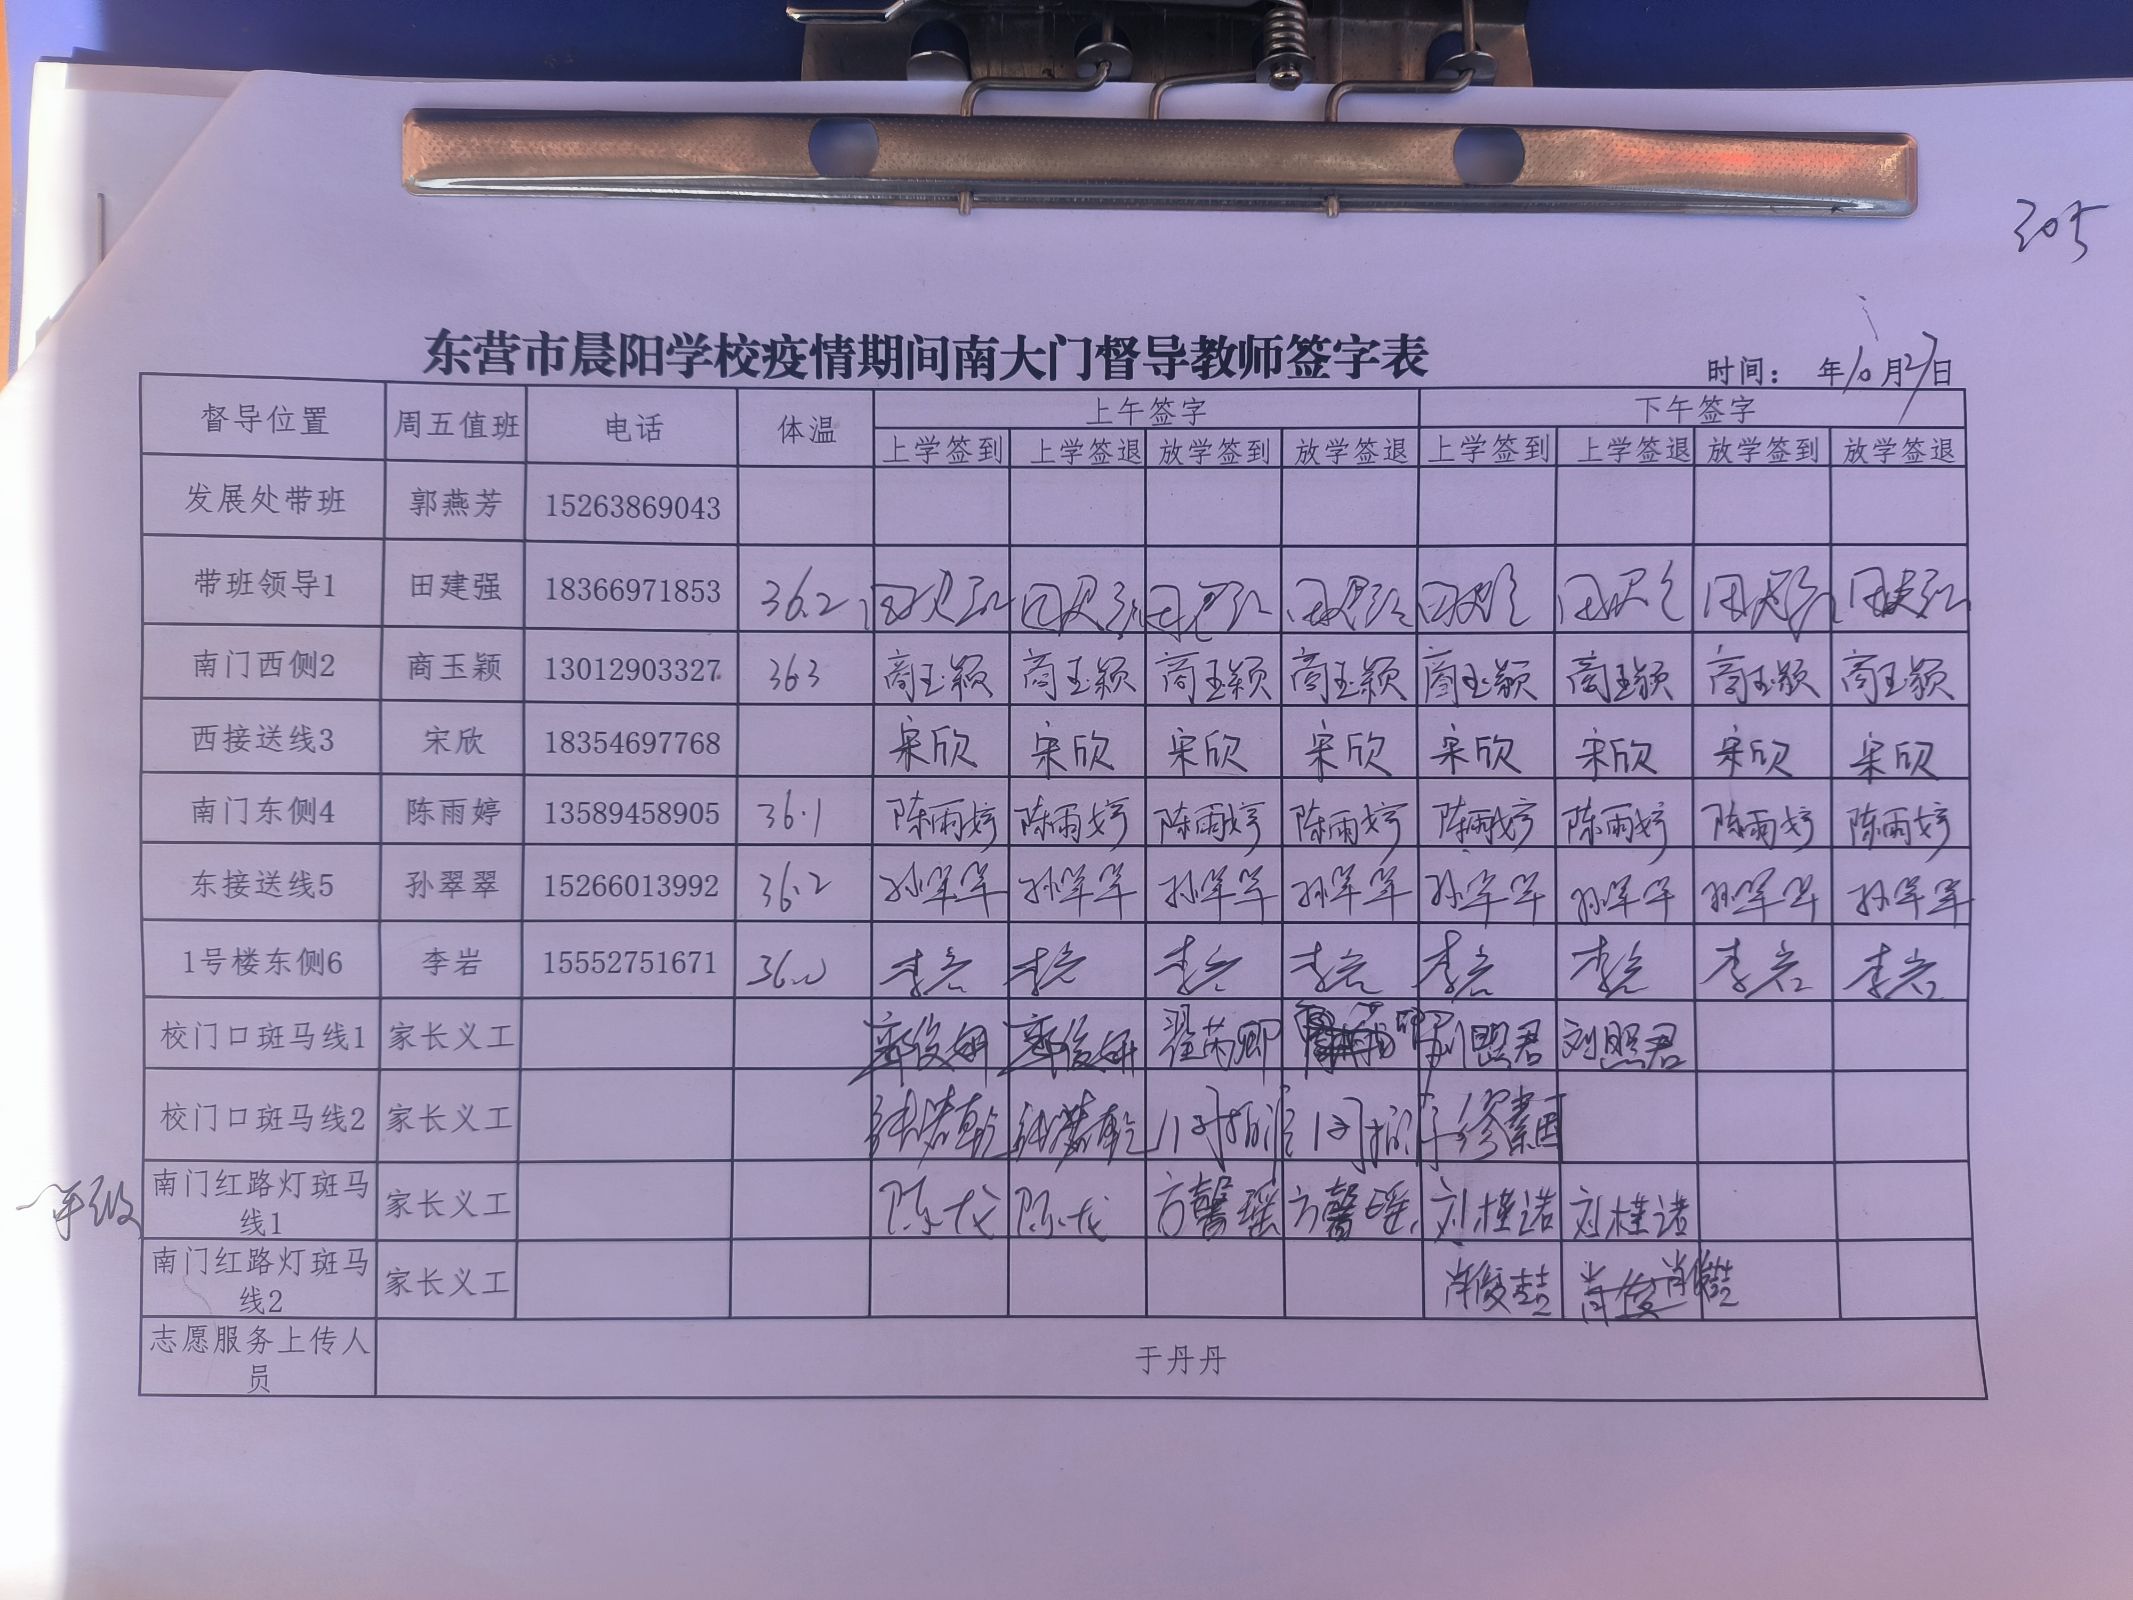 305
东营市晨阳学校疫情期间南大门督导教师签字表
时间： 年10月27日
督导位置 周五值班 电话 体温 上午签字 下午签字
上学签到 上学签退 放学签到 放学签退 上学签到 上学签退 放学签到 放学签退
发展处带班 郭燕芳 15263869043
带班领导1 田建强 18366971853 36.2 田建强 田建强 田建强 田建强 田建强 田建强 田建强 田建强
南门西侧2 商玉颖 13012903327 363 商玉颖 商玉颖 商玉颖 商玉颖 商玉颖 商玉颖 商玉颖 商玉颖
西接送线3 宋欣 18354697768 宋欣 宋欣 宋欣 宋欣 宋欣 宋欣 宋欣 宋欣
南门东侧4 陈雨婷 13589458905 36.1 陈雨婷 陈雨婷 陈雨婷 陈雨婷 陈雨婷 陈雨婷 陈雨婷 陈雨婷
东接送线5 孙翠翠 15266013992 36.2 孙翠翠 孙翠翠 孙翠翠 孙翠翠 孙翠翠 孙翠翠 孙翠翠 孙翠翠
1号楼东侧6 李岩 15552751671 36.0 李岩 李岩 李岩 李岩 李岩 李岩 李岩 李岩
校门口斑马线1 家长义工 翟芳卿 刘照君
校门口斑马线2 家长义工
一年级
南门红路灯斑马
线1 家长义工 陈龙 陈龙 方馨瑶 方馨瑶 刘槿诺 刘槿诺
南门红路灯斑马
线2 家长义工 肖俊喆
志愿服务上传人
员 于丹丹